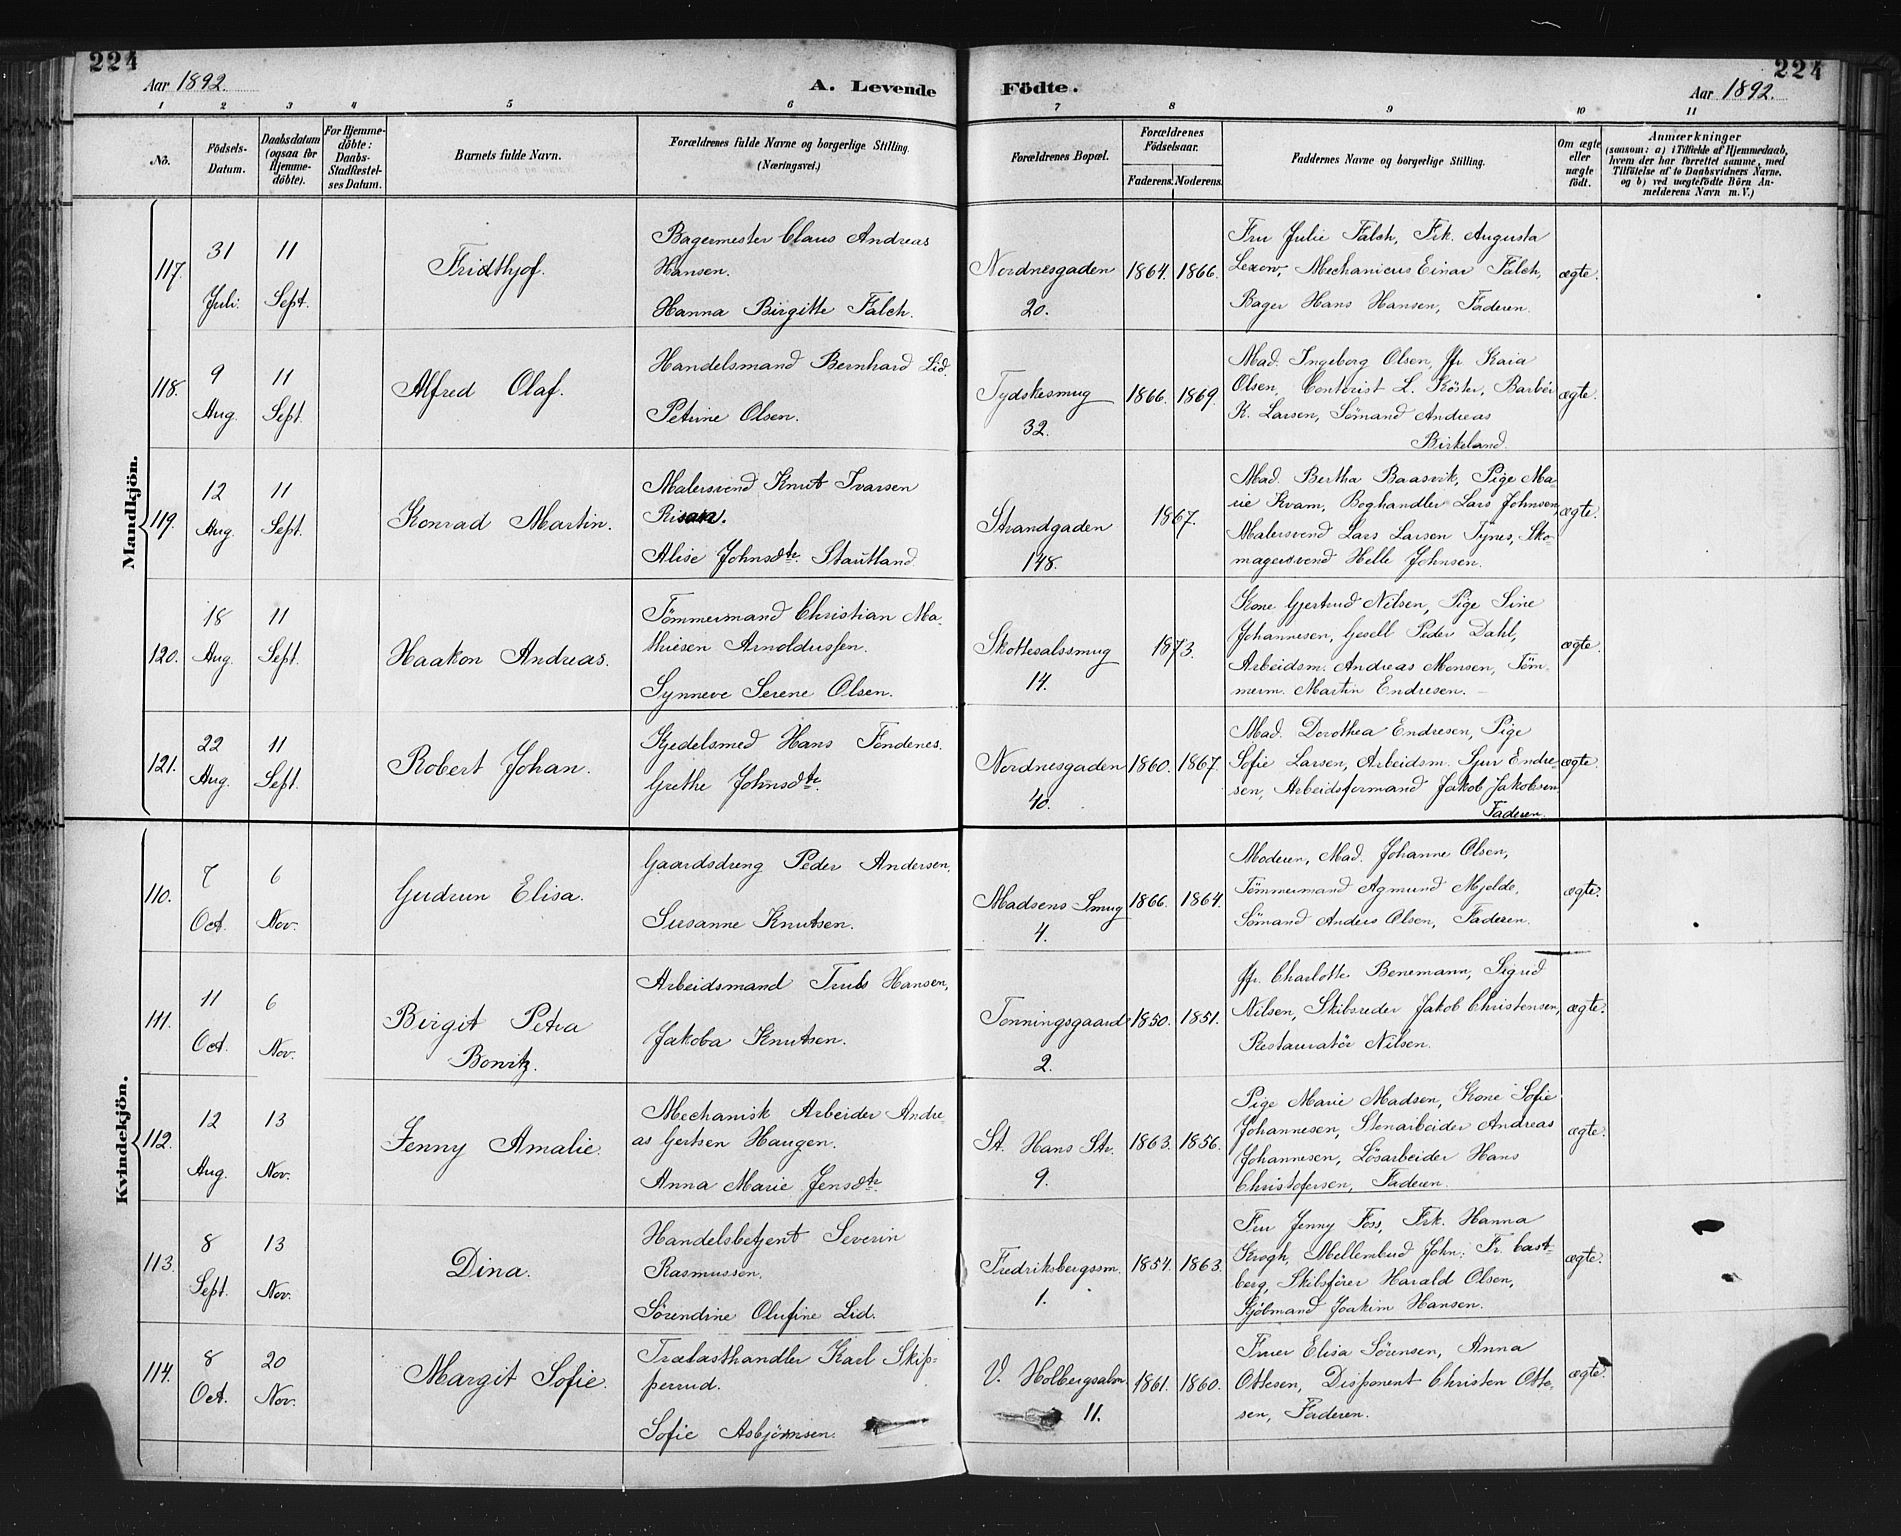 224
224
Aar 1892.
A. Levende Födte.
Aar 1892.
1 2 3 4 5 6 7 8 9 10 11
No.
Födsels-Datum.
Daabsdatum (ogsaa for Hjemme-döbte).
For Hjemme-döbte: Daabs-Stadfæstel-ses Datum.
Barnets fulde Navn.
Forældrenes fulde Navne og borgerlige Stilling. (Næringsvei.)
Forældrenes Bopæl.
Forældrenes Födselsaar.
Faderens. Moderens.
Faddernes Navne og borgerlige Stilling.
Om ægte eller uægte födt.
Anmærkninger
(saasom: a) i Tilfælde af Hjemmedaab,
hvem der har forrettet samme, med
Tilföielse af to Daabsvidners Navne.
og b) ved uægtefödte Börn An-
melderens Navn m. V.)
Mandkjön.
117. 31 Juli. 11 Sept. Fridthjof.
Bagermester Claus Andreas
Hansen.
Hanna Birgitte Falch.
Nordnesgaden 20. 1864. 1866.
Fru Julie Falch, Frk. Augusta
Lexow, Mechanicus Einar Falch,
Bager Hans Hansen, Faderen.
ægte.
118. 9 Aug. 11 Sept. Alfred Olaf.
Handelsmand Bernhard Lid.
Petrine Olsen.
Tydskesmug 32. 1866. 1869.
Mad. Ingeborg Olsen, Jfr. Kaia
Olsen, Contorist L. Köster, Barbér
K. Larsen, Sömand Andreas
Birkeland.
ægte.
119. 12 Aug. 11 Sept. Konrad Martin.
Malersvend Knut Ivarsen
Alise Johnsdtr. Stautland.
Strandgaden 148. 1867.
Mad. Bertha Baasvik, Pige Ma-
rie Kvam, Boghandler Lars Johnsen,
Malersvend Lars Larsen Tynes, Sko-
magersvend Helle Johnsen.
ægte.
120. 18 Aug. 11 Sept. Haakon Andreas.
Tömmermand Christian Ma-
thiesen Arnoldussen.
Synneve Serene Olsen.
Skottesalssmug 14. 1873.
Kone Gjertrud Nilsen, Pige Sine
Johannesen, Gesell Peder Dahl,
Arbeidsm. Andreas Monsen, Töm-
merm. Martin Endresen.
ægte.
121. 22 Aug. 11 Sept. Robert Johan.
Kjedelsmed Hans Fondenes.
Grethe Johnsdtr.
Nordnesgaden 40. 1860. 1867.
Mad. Dorothea Endresen, Pige
Sofie Larsen, Arbeidsm. Sjur Endre-
sen, Arbeidsformand Jakob Jakobsen
Faderen.
ægte.
Kvindekjön.
110. 7 Oct. 6 Nov. Gudrun Elisa.
Gaardsdreng Peder Andersen,
Susanne Knutsen.
Madsens Smug 4. 1866. 1864.
Moderen, Mad. Johanne Olsen,
Tömmermand Agmund Mjelde,
Sömand Anders Olsen, Faderen.
ægte.
111. 11 Oct. 6 Nov. Birgit Petra
Bowitz.
Arbeidsmand Truls Hansen,
Jakoba Knutsen.
Tonningsgaard 2. 1850. 1851.
Jfr. Charlotte Benemann, Sigrid
Nilsen, Skibsreder Jakob Christensen,
Restauratör Nilsen.
ægte.
112. 12 Aug. 13 Nov. Jenny Amalie.
Mechanisk Arbeider Andre-
as Gertsen Haugen.
Anna Marie Jensdtr.
St. Hans Str. 9. 1863. 1856.
Pige Marie Madsen, Kone Sofie
Johannesen, Stenarbeider Andreas
Johannesen, Lösarbeider Hans
Christofersen, Faderen.
ægte.
113. 8 Sept. 13 Nov. Dina.
Handelsbetjent Severin
Rasmussen.
Sörendine Olufine Lid.
Fredriksbergssm. 1. 1854. 1863.
Fru Jenny Foss, Frk. Hanna
Krogh, Mellembud John: Fr. Cast-
berg, Skibsförer Harald Olsen,
Kjöbmand Joakim Hansen.
ægte.
114. 8 Oct. 20 Nov. Margit Sofie.
Trælasthandler Karl Skip-
perrud.
Sofie Asbjörnsen.
V. Holbergsalm. 11. 1861. 1860.
Fruer Elisa Sörensen, Anna
Ottesen, Disponent Christen Otte-
sen, Faderen.
ægte.